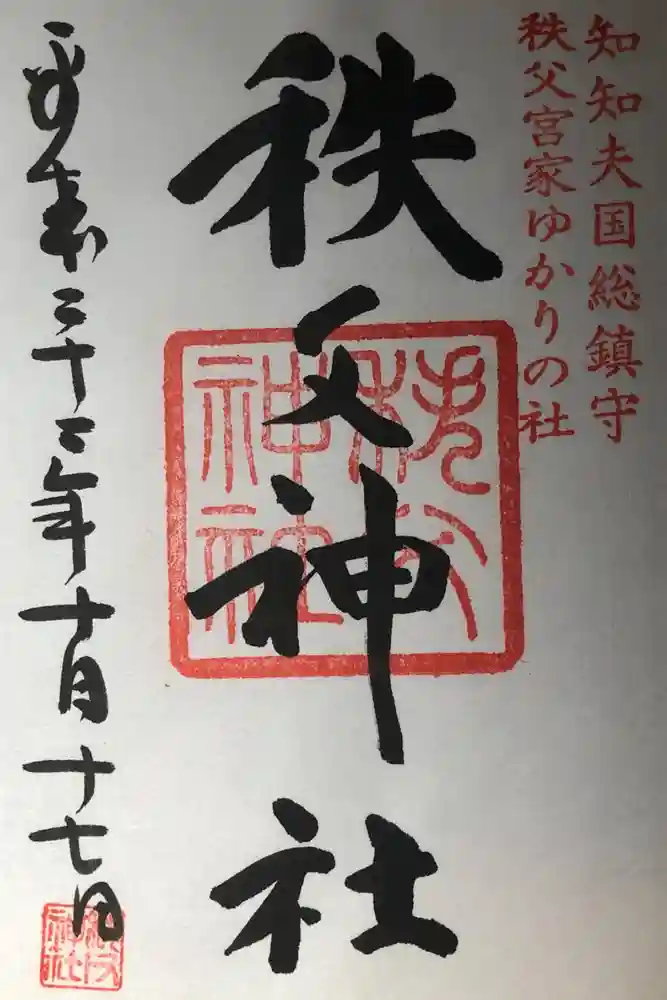 知知夫国総鎮守
秩父宮家ゆかりの社
秩父神社
秩父神社
平成二十二年十月十七日
秩父神社